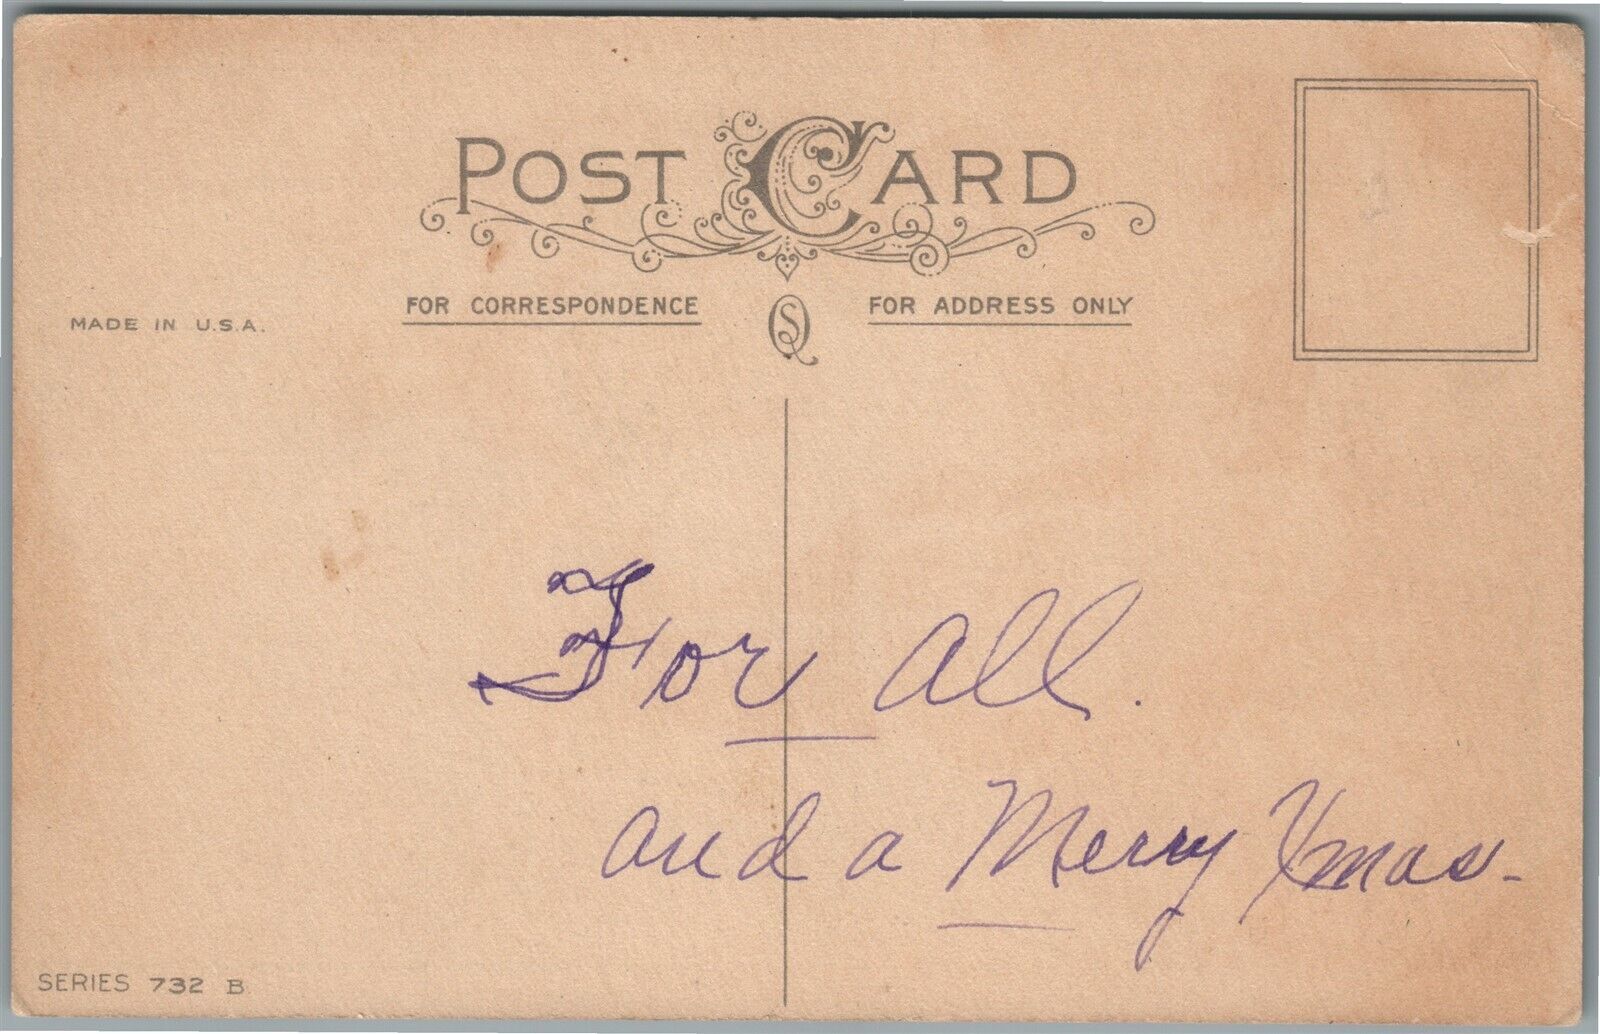 POST CARD
FOR CORRESPONDENCE
FOR ADDRESS ONLY
MADE IN U.S.A.
For all.
and a Merry Xmas-
SERIES 732 B